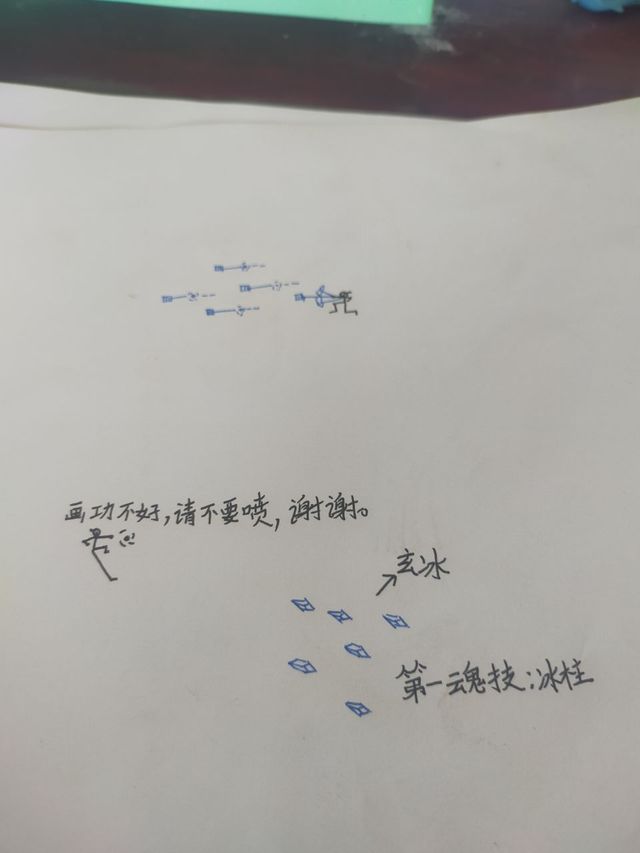 画功不好,请不要喷,谢谢。
玄冰
第一魂技:冰柱